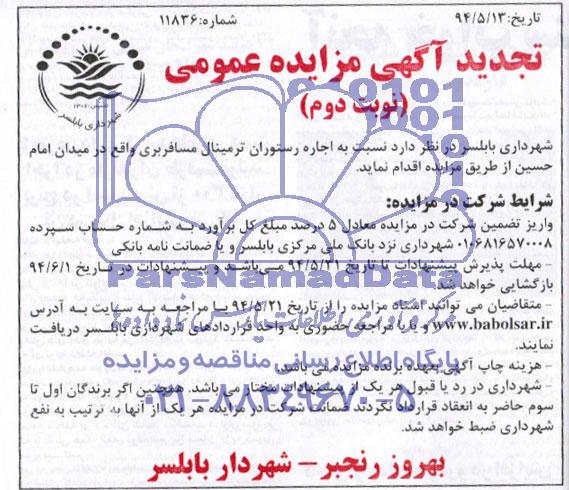 تاریخ: ۹۴/۵/۱۳
شماره: ۱۱۸۳۶
شهرداری بابلسر
تجدید آگهی مزایده عمومی
(نوبت دوم)
شهرداری بابلسر در نظر دارد نسبت به اجاره رستوران ترمینال مسافربری واقع در میدان امام
حسین از طریق مزایده اقدام نماید.
شرایط شرکت در مزایده:
واریز تضمین شرکت در مزایده معادل ۵ درصد مبلغ کل برآورد به شماره حساب سپرده
۰۱۰۶۸۱۶۵۷۰۰۰۸ شهرداری نزد بانک ملی مرکزی بابلسر و یا ضمانت نامه بانکی
- مهلت پذیرش پیشنهادات تا تاریخ ۹۴/۵/۳۱ می‌باشد و پیشنهادات در تاریخ ۹۴/۶/۱
بازگشایی خواهد شد.
- متقاضیان می توانند اسناد مزایده را از تاریخ ۹۴/۵/۲۱ با مراجعه به سایت به آدرس
www.babolsar.ir و یا با مراجعه حضوری به واحد قراردادهای شهرداری بابلسر دریافت
نمایند.
- هزینه چاپ آگهی بعهده برنده مزایده می باشد.
- شهرداری در رد یا قبول هر یک از پیشنهادات مختار می باشد. همچنین اگر برندگان اول تا
سوم حاضر به انعقاد قرارداد نگردند ضمانت شرکت در مزایده هر یک از آنها به ترتیب به نفع
شهرداری ضبط خواهد شد.
بهروز رنجبر – شهردار بابلسر
ParsNamadData
پایگاه اطلاع رسانی مناقصه و مزایده
۰۲۱-۸۸۳۴۹۶۷۰-۵